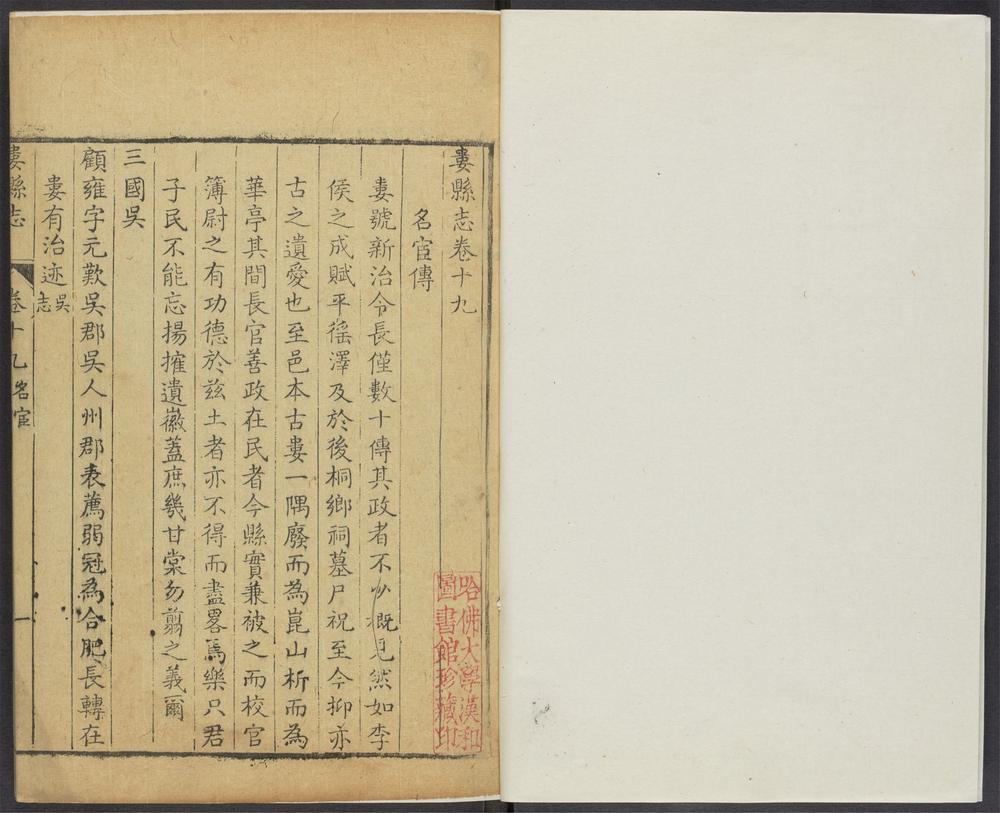 婁縣志卷十九
名宦傳
婁號新治令長僅數十傳其政者不少概見然如李
侯之成賦平徭澤及於後桐鄉祠墓尸祝至今抑亦
古之遺愛也至邑本古婁一隅廢而為崑山析而為
華亭其間長官善政在民者今縣實兼被之而校官
簿尉之有功德於兹土者亦不得而盡畧焉樂只君
子民不能忘揚搉遺徽蓋庶幾甘棠勿翦之義爾
三國吳
顧雍字元歎吳郡吳人州郡表薦弱冠為合肥長轉在
婁有治迹吳志
婁縣志 卷十九 名宦 一
哈佛大學漢和
圖書館珍藏印